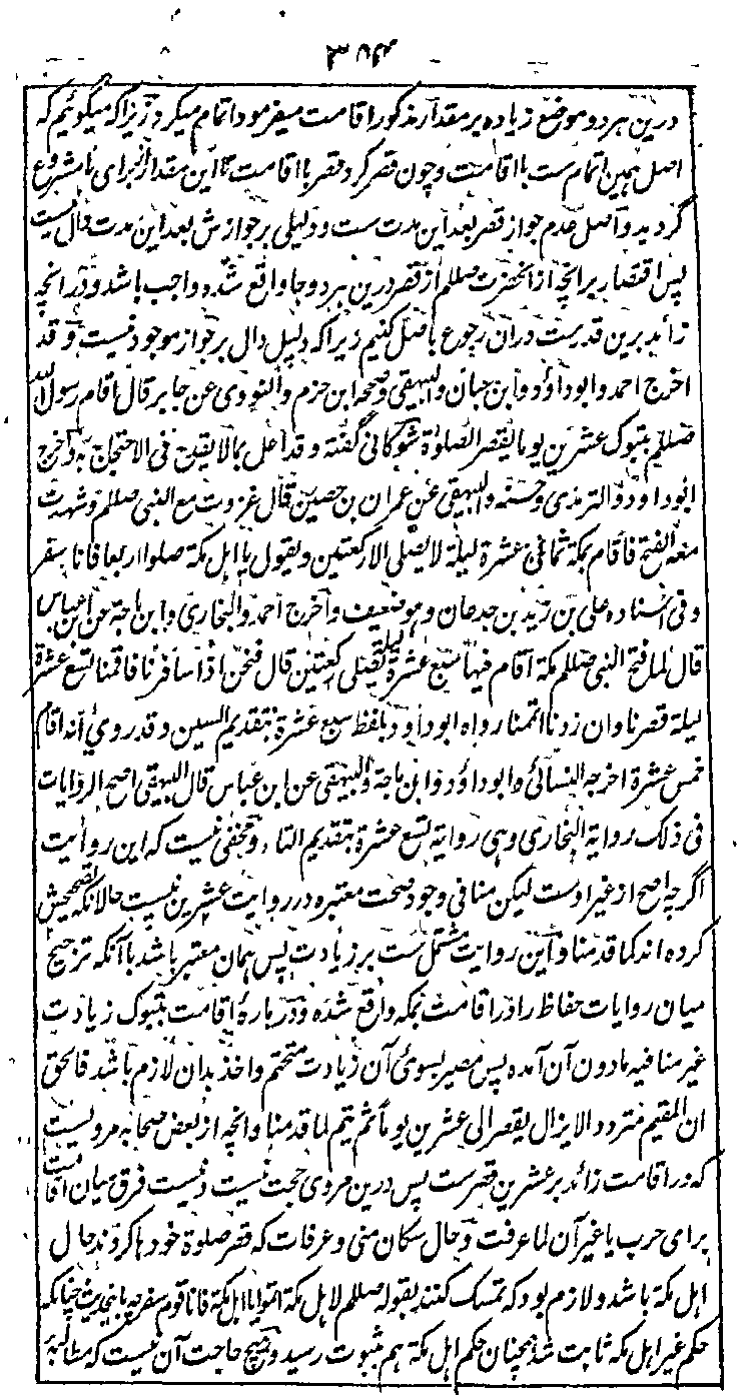 ۳۸۴
درین هر دو موضع زیاده بر مقدار مذکور اقامت میفرمود اتمام میکرد زیرا که میگوئیم که
اصل همین اتمام ست با اقامت و چون قصر کرد قصر با اقامت تا این مقدار برای ما مشروع
گردید و اصل عدم جواز قصر بعد این مدت ست و دلیلی بر جوازش بعد این مدت دال نیست
پس اقتصار بر انچه از آنحضرت صللم از قصر درین هر دو جا واقع شده واجب باشد و در انچه
زائد برین قدرست دران رجوع باصل کنیم زیرا که دلیل دال بر جواز موجود نیست و قد
اخرج احمد وابو داؤد وابن حبان والبیهقی وصححه ابن حزم والنووی عن جابر قال اقام رسول الله
صللم بتبوک عشرین یوما یقصر الصلوة شوکانی گفته و قد اعل بما لا یقدح فی الاحتجاج به واخرج
ابو داود والترمذی وحسنه والبیهقی عن عمران بن حصین قال غزوت مع النبی صللم وشهدت
معه الفتح فاقام بمکة ثمانی عشرة لیلة لا یصلی الا رکعتین ویقول یا اهل مکة صلوا اربعا فانا سفر
وفی اسناده علی بن زید بن جدعان وهو ضعیف واخرج احمد والبخاری وابن ماجة عن ابن عباس
قال لما فتح النبی صللم مکة اقام فیها تسع عشرة لیلة یصلی رکعتین قال فنحن اذا سافرنا فاقمنا تسع عشرة
لیلة قصرنا وان زدنا اتممنا رواه ابو داود بلفظ سبع عشرة بتقدیم السین وقد روی انه اقام
خمس عشرة اخرجه النسائی وابو داؤد وابن ماجة والبیهقی عن ابن عباس قال البیهقی اصح الروایات
فی ذلک روایة البخاری وهی روایة تسع عشرة بتقدیم التاء و مخفی نیست که این روایت
اگرچه اصح از غیر اوست لیکن منافی وجود صحت معتبره در روایت عشرین نیست حالانکه تصحیحش
کرده اند کما قدمنا و این روایت مشتمل ست بر زیادت پس همان معتبر باشد با آنکه ترجیح
میان روایات حفاظ را در اقامت بمکه واقع شده و درباره اقامت بتبوک زیادت
غیر منافیه مادون آن آمده پس مصیر بسوی آن زیادت متحتم و اخذ بدان لازم باشد فالحق
ان المقیم متردد الا یزال یقصر الی عشرین یوما ثم یتم لما قدمنا و انچه از بعض صحابه مرویست
که در اقامت زائد بر عشرین قصرست پس درین مروی حجت نیست و نیست فرق میان اقامت
برای حرب یا غیر آن لما عرفت و حال سکان منی و عرفات که قصر صلوة خود ها کردند حال
اهل مکة باشد و لازم بود که تمسک کنند بقوله صللم لاهل مکة اتموا یا اهل مکة فانا قوم سفر چه باینحدیث چنانکه
حکم غیر اهل مکه ثابت شد همچنان حکم اهل مکة هم بثبوت رسید و هیچ حاجت آن نیست که مطالبه